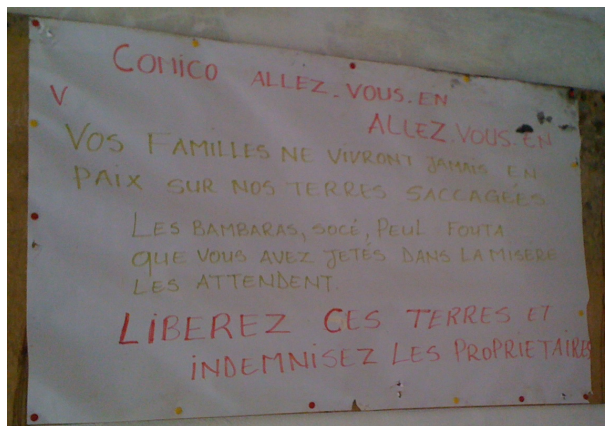 COMICO ALLEZ-VOUS-EN
ALLEZ-VOUS-EN
V
VOS FAMILLES NE VIVRONT JAMAIS EN
PAIX SUR NOS TERRES SACCAGÉES
LES BAMBARAS, SOCÉ, PEUL FOUTA
QUE VOUS AVEZ JETÉS DANS LA MISERE
LES ATTENDENT.
LIBEREZ CES TERRES ET
INDEMNISEZ LES PROPRIETAIRES